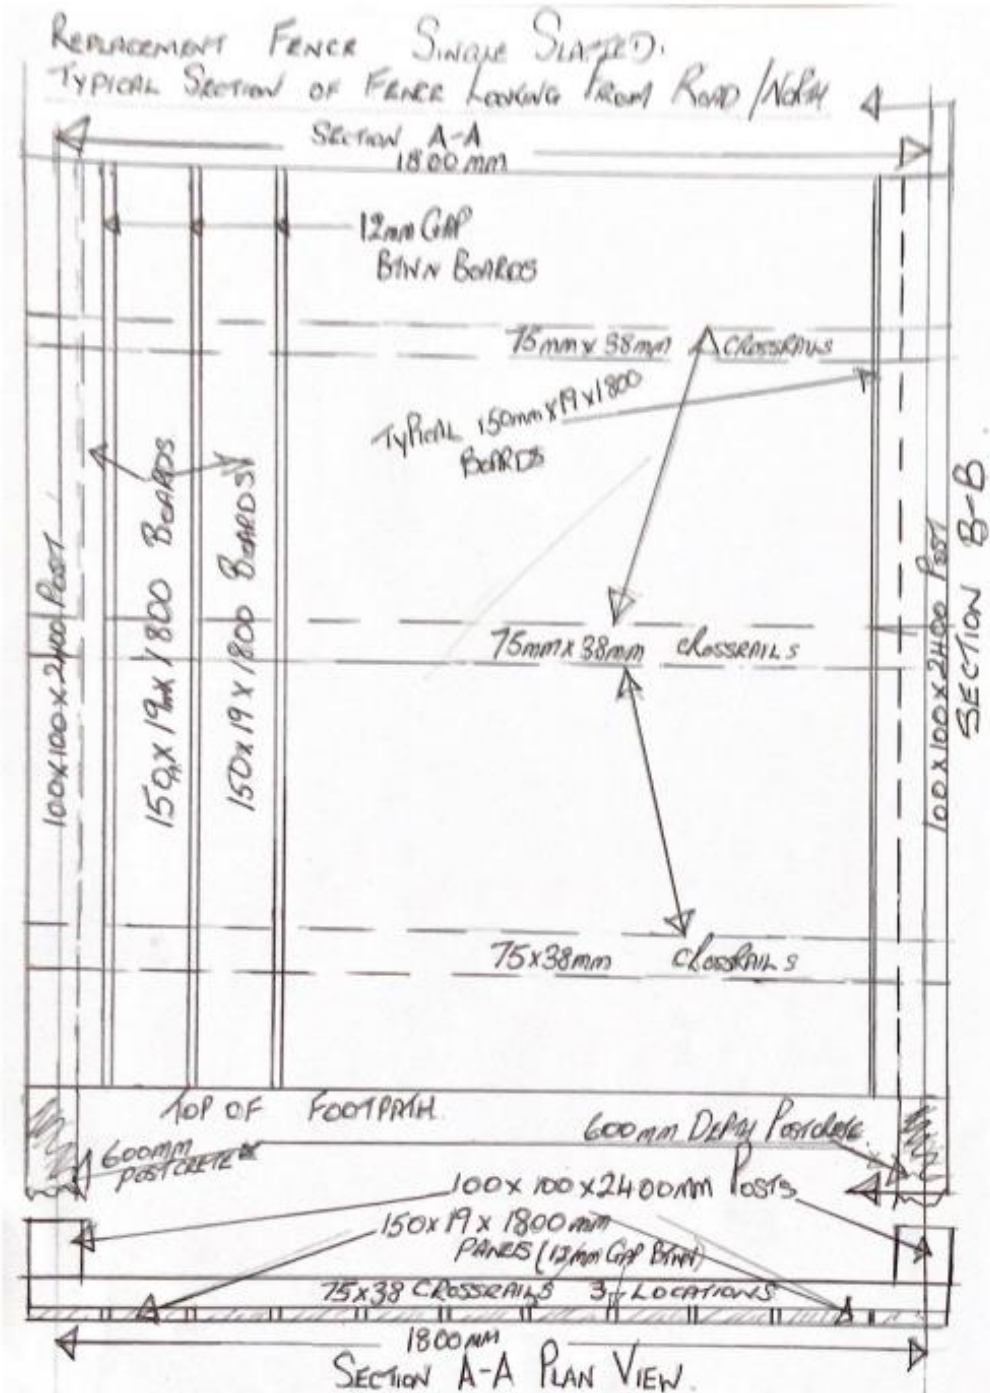 REPLACEMENT FENCE SINGLE SLATED.
TYPICAL SECTION OF FENCE LOOKING FROM ROAD/NORTH
SECTION A-A
1800mm
12mm GAP
BTWN BOARDS
75mm x 38mm CROSSRAILS
TYPICAL 150mm x 19 x 1800
BOARDS
100x100x2400 POST
150 x 19mm x 1800 BOARDS
150 x 19 x 1800 BOARDS
75mm x 38mm CROSSRAILS
100x100x2400 POST
SECTION B-B
75x38mm CROSSRAILS
TOP OF FOOTPATH
600mm
POSTCRETE
600mm DEPTH POSTCRETE
100x100x2400mm POSTS
150x19x1800mm
PANELS (12mm GAP BTWN)
75x38 CROSSRAILS 3 LOCATIONS
1800mm
SECTION A-A PLAN VIEW.